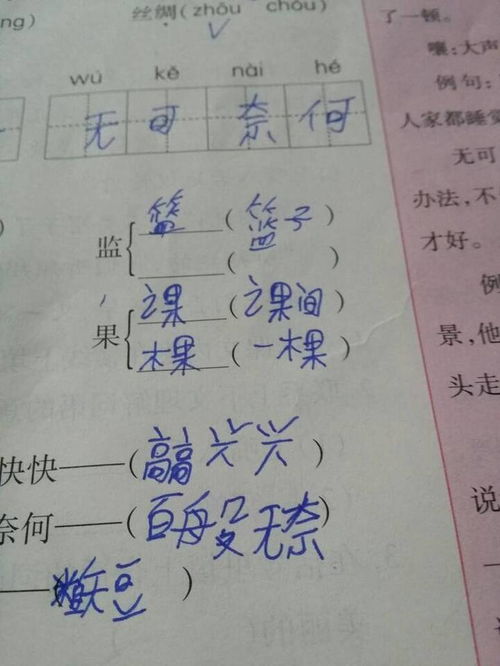 ng)
丝绸(zhōu chóu)
wú kě nài hé
无可奈何
监
篮(篮子)
(      )
果
课(课间)
棵(一棵)
快快——(高高兴兴)
奈何——(百般无奈)
——(      )
了一顿。
嚷:大声
例句:
人家都睡觉
无可
办法,不
才好。
例
景,他
头走
说